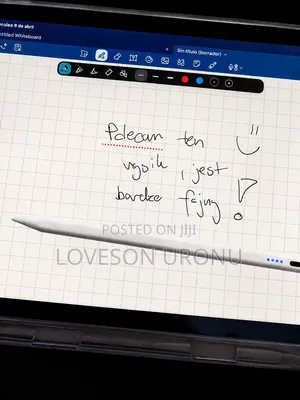 rcoles 8 de abril
Sin título (borrador)
ntitled Whiteboard
Polecam ten
rysik, jest
bardzo fajny!
POSTED ON JIJI
LOVESON URONU